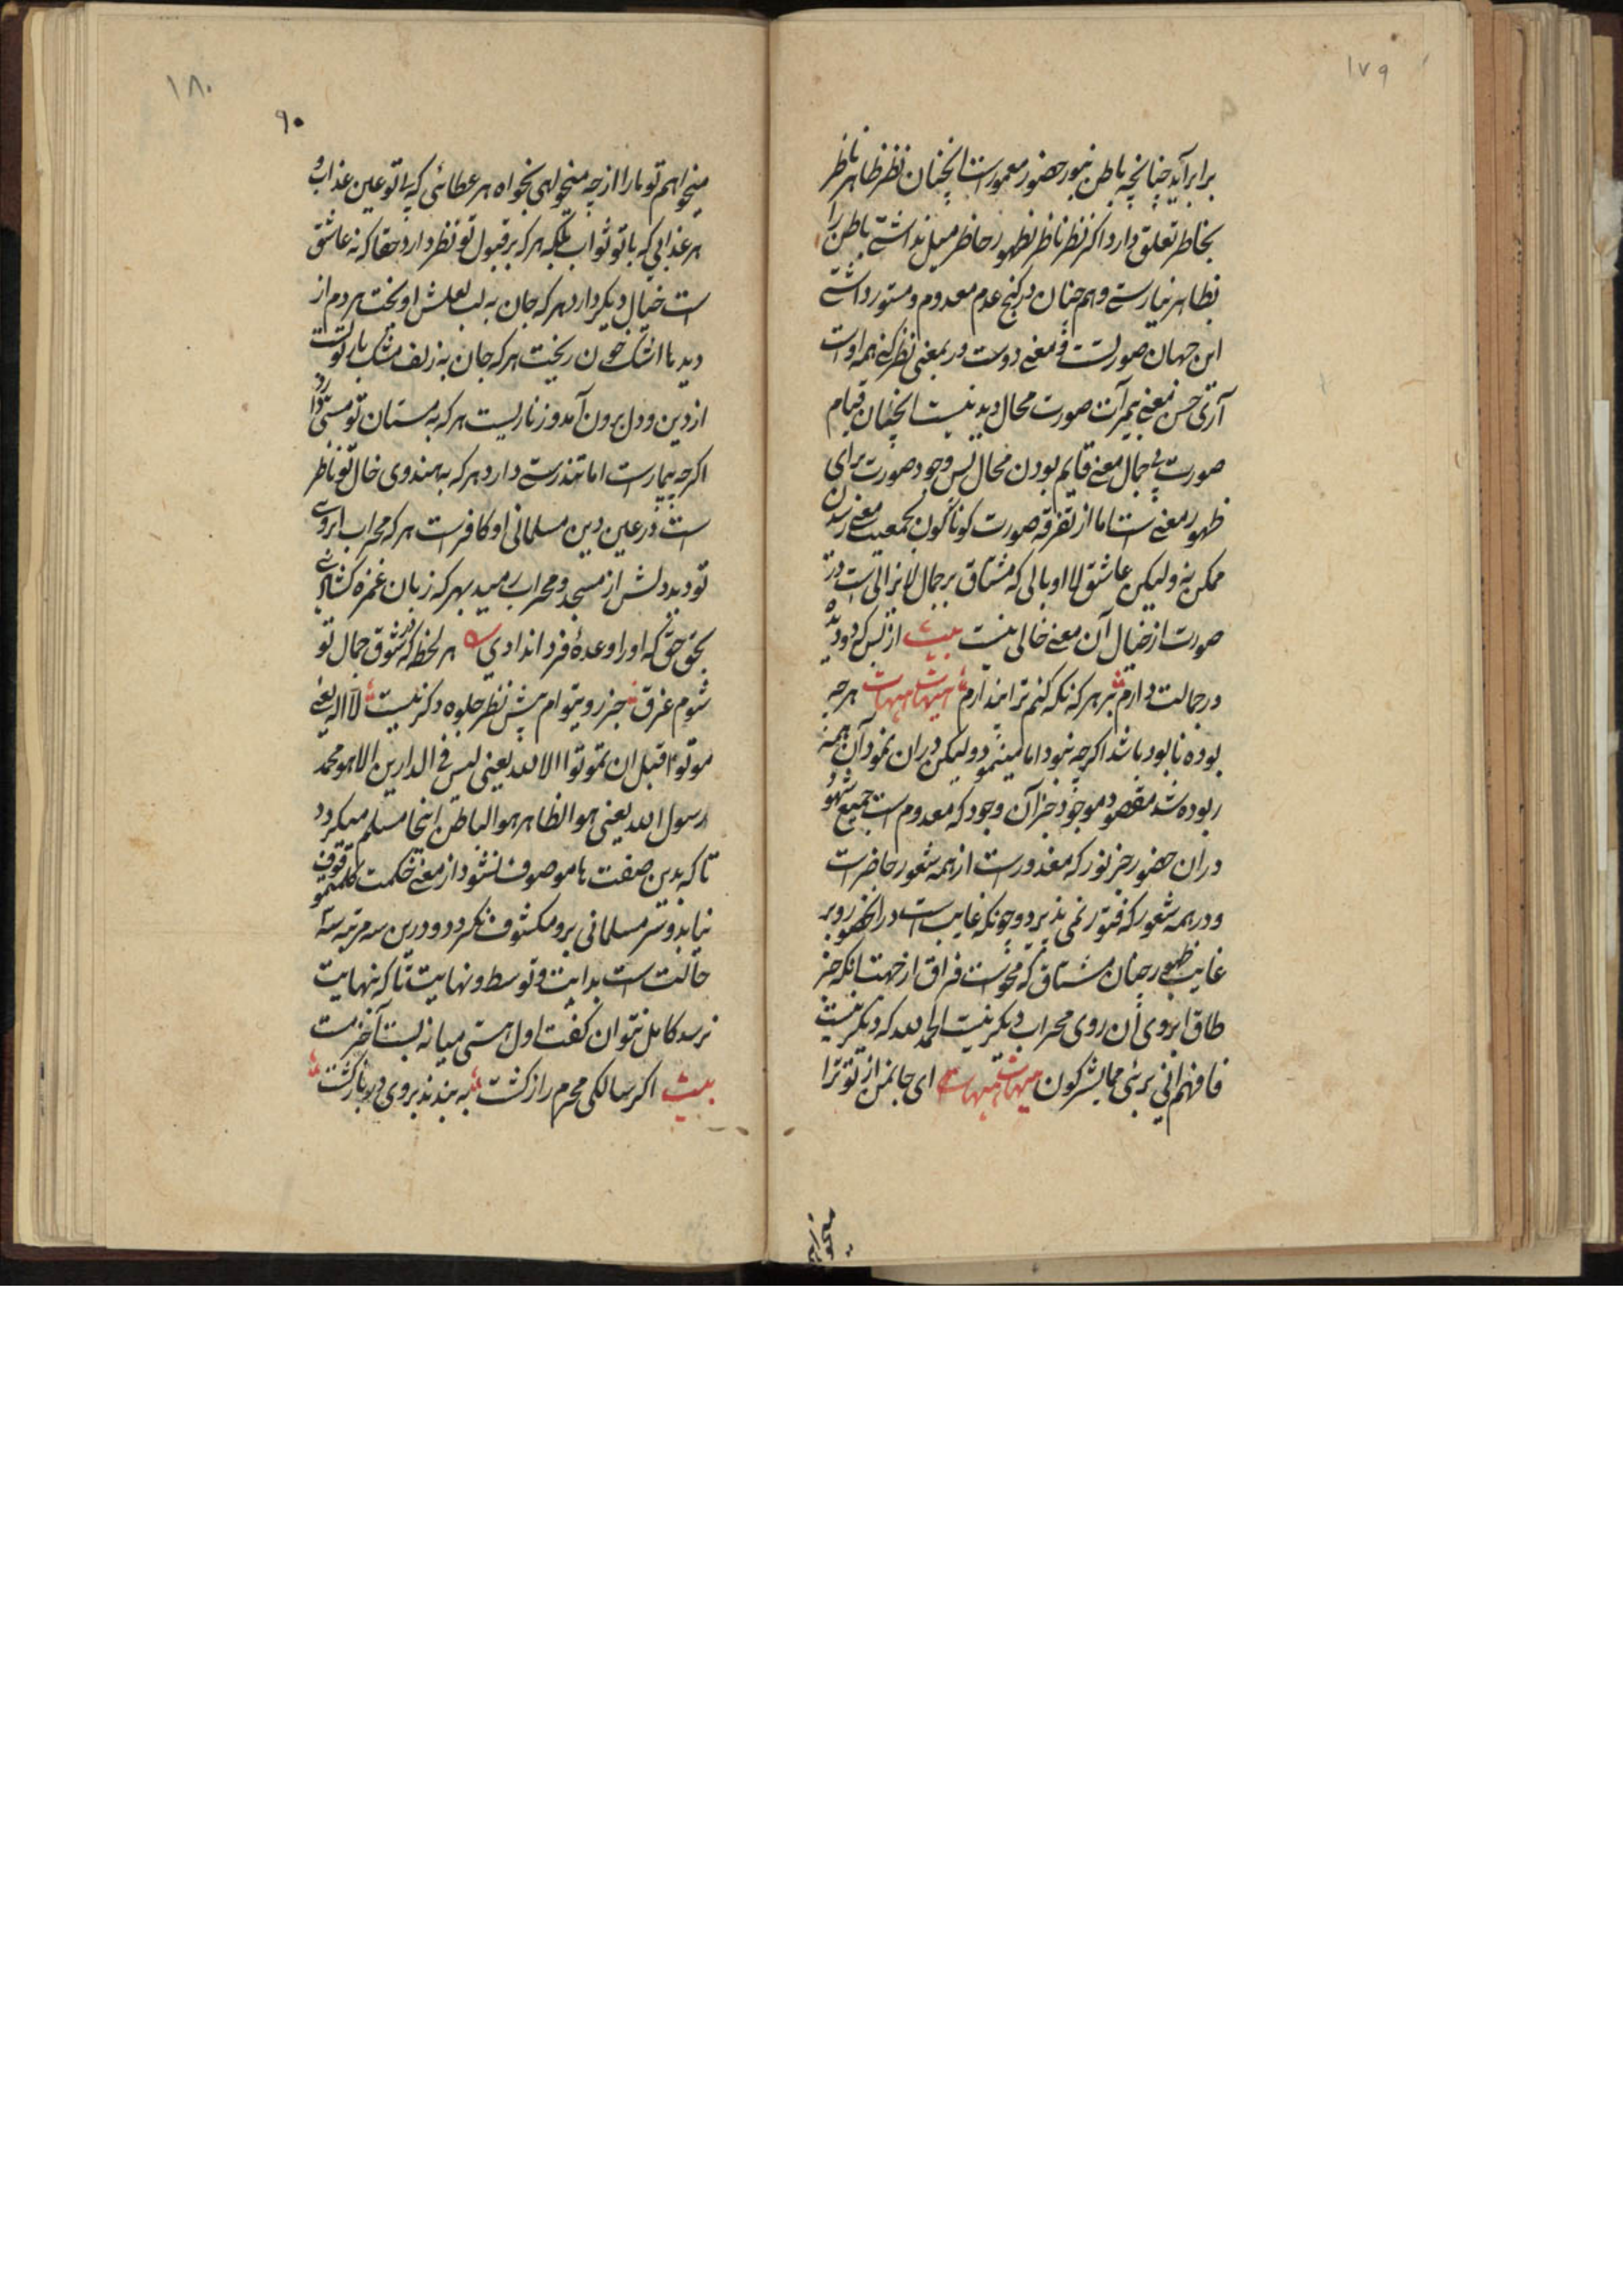 ١٧٩
برابر آید چنانچه باطن بنور حضور معمورست انچنان نظر ظاهر ناظر
بخاطر تعلق دارد اکر نظر ناظر بظهور حاظر میل نداشتی باطن را
بظاهر نیارستی و همچنان در کنج عدم معدوم و مستور داشتی
این جهان صورتست و معنی دوست در بمعنی نظر کنی همه اوست
آری حسن معنی بیمرآت صورت محال دید نیست انچنان قیام
صورت بی جمال معنی قایم بودن محال پس وجود صورت برای
ظهور معنی است اما از تفرقه صورت کوناکون بجمعیت معنی رسیدن
ممکن نه ولیکن عاشق لااوبالی که مشتاق بر جمال لایزالی است در
صورت از خیال آن معنی خالی نیست بیت از بس که دو دیده
در جمالت دارم بر هر که نکه کنم ترا پندارم هیهات هیهات هرچه
بوده نابود باشد اکرچه نبود اما مینمود ولیکن دران نمود آن همه
ربوده شد مقصود موجود جز آن وجود که معدوم است جمیع شهود
دران حضور جز نور که معذورست از همه شعور حاضر است
و در همه شعور که فتور نمی پذیرد و چونکه غایب است در انحضور و بر
غایب ظهور چنان مشتاق که محوست فراق از جهت انکه جز
طاق ابروی آن روی محراب دیکر نیست الحمد لله که دیکر نیست
فافهم انی بریئ مما یشرکون هیهات هیهات ای جانمن از تو ترا
میخواهم
١٨٠
٩٠
میخواهم تو مارا از چه میخواهی بخواه هر عطائی که بی تو عین عذاب و
هر عذابی که با تو ثواب بلکه هر که بر قبول تو نظر دارد حقا که نه عاشق
است خیال دیکر دارد هر که جان به لب لعلش اویخت هر دم از
دیدها اشک خون ریخت هر که جان به زلف مشک بار تو بست
از دین و دل برون آمد و زنار بست هر که به مستان تو مستی دارد
اکرچه بیمارست اما تندرستی دارد هر که به هندوی خال تو ناظر
است در عین دین مسلمانی او کافرست هر که محراب ابروی
تو دید دلش از مسجد و محراب رمید بهر که زبان غمزه کشادی
بحق حق که اورا وعدهٔ فردا ندادی هر لحظه که در شوق جمال تو
شوم غرق جز روی توام پیش نظر جلوه دکر نیست لا اله یعنی
موتوا قبل ان تموتوا الا الله یعنی لیس فی الدارین الا هو محمد
رسول الله یعنی هو الظاهر هو الباطن اینجا مسلم میکردد
تا که بدین صفت ها موصوف نشود از معنی حکمت کلمه وقوف
نیابد و سر مسلمانی برو مکشوف نکردد و درین سه مرتبه سه
حالت است بدایت و توسط و نهایت تا که نهایت
نرسد کامل نتوان کفت اول هستی میانه بست آخر مست
بیت اکر سالکی محرم راز کشت به بندند بروی در بازکشت